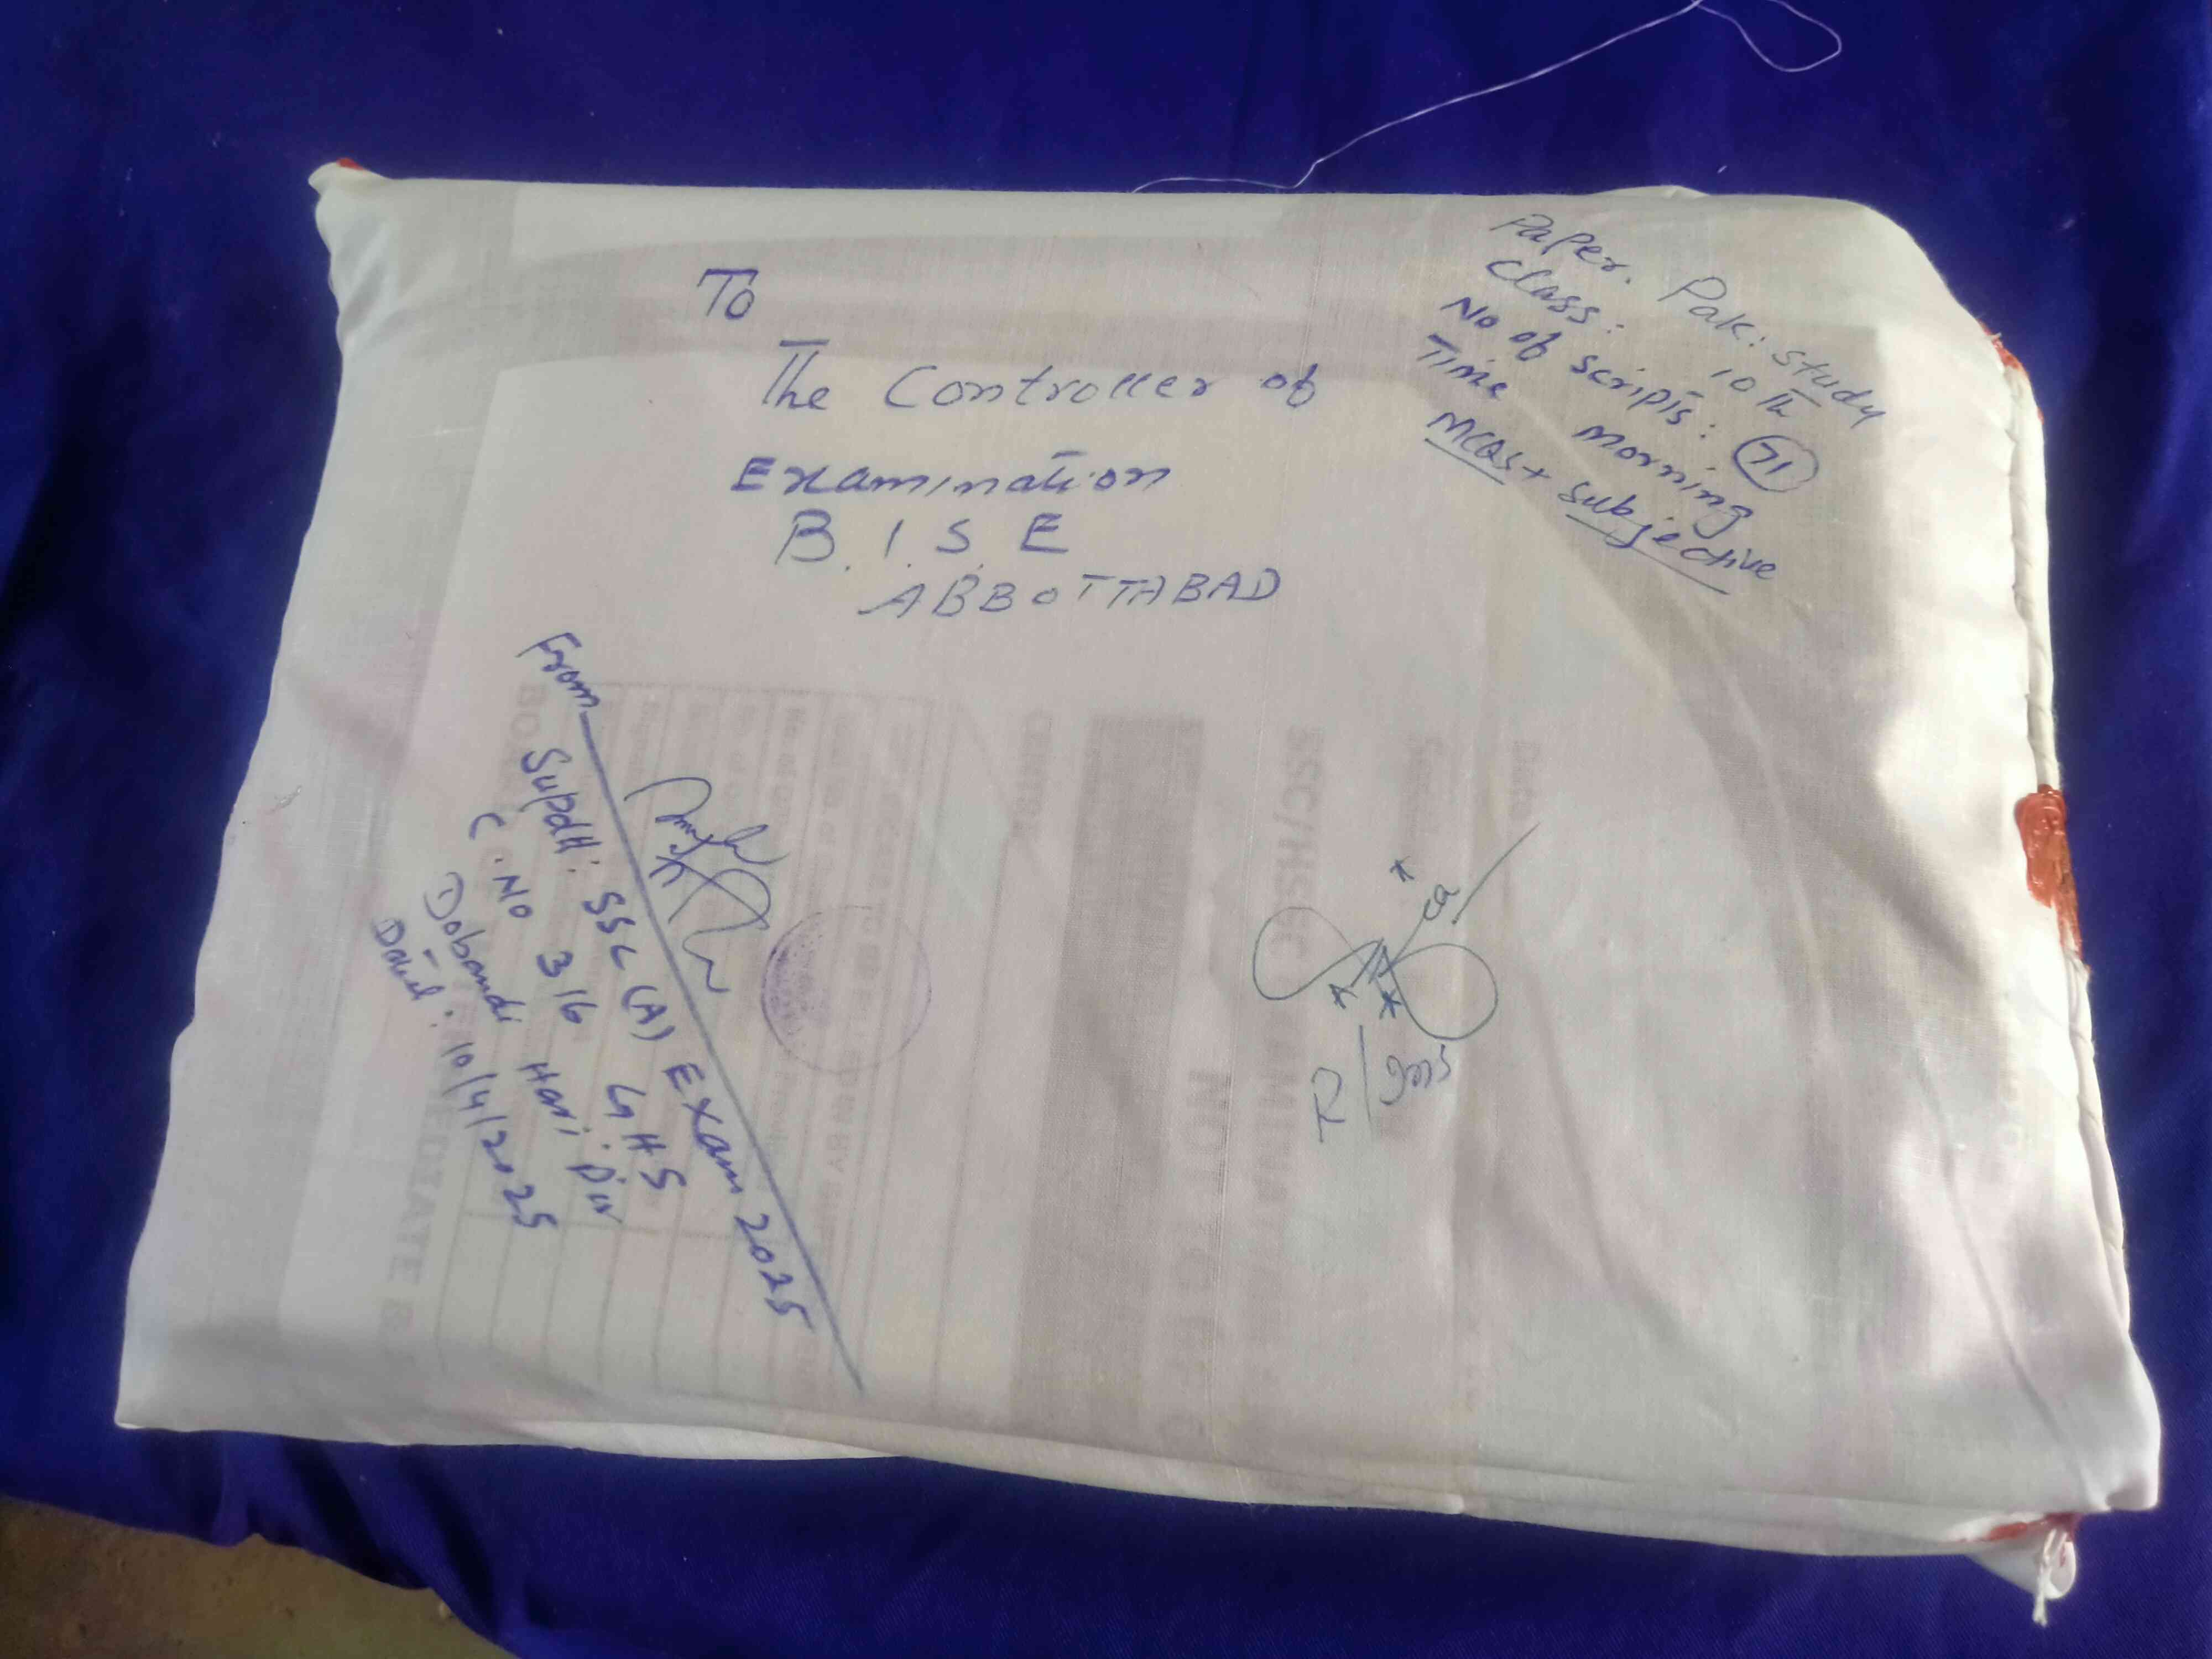 To
The Controller of
Examination
B.I.S.E
ABBOTTABAD
Paper. Pak: study
Class: 10th
No of scripts: 71
Time Morning
MCQs + subjective
From
Supdtt: SSC (A) Exam 2025
C. No 316 GHS
Dobandi Hari Pur
Dated: 10/4/2025